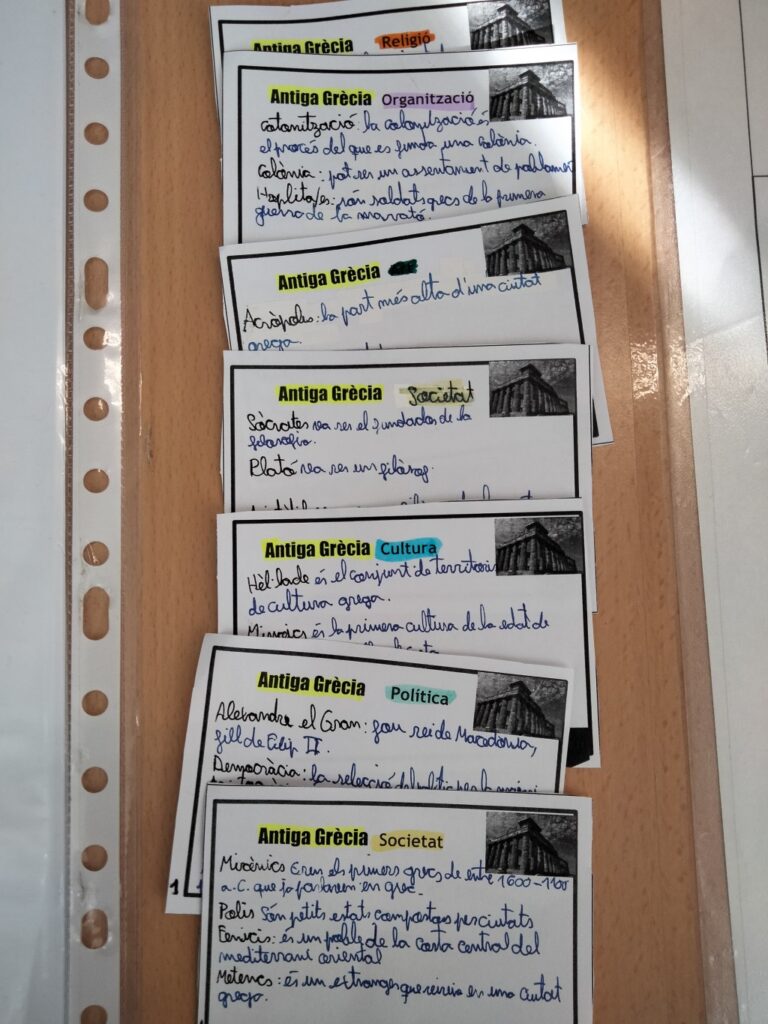 Antiga Grècia Religió
Antiga Grècia Organització
colonització: la colonització és
el procés del que es funda una colònia.
Colònia: pot ser un assentament de poblament
Hoplites: són soldats grecs de la primera
guerra de la marató.
Antiga Grècia
Acròpolis: la part més alta d'una ciutat
grega.
Antiga Grècia Societat
Sòcrates va ser el fundador de la
filosofia.
Plató va ser un filòsof.
Antiga Grècia Cultura
Hèl·lade és el conjunt de territoris
de cultura grega.
Minoics és la primera cultura de la edat de
Antiga Grècia Política
Alexandre el Gran: fou rei de Macedònia,
fill de Filip II.
Democràcia: la selecció del polític per la
1
Antiga Grècia Societat
Micènics Eren els primers grecs de entre 1600-1100
a.C. que ja parlaven en grec.
Polis Són petits estats compostos per ciutats
Fenicis: és un poble de la costa central del
mediterrani oriental
Metecs: és un extranger que vivia en una ciutat
grega.
1